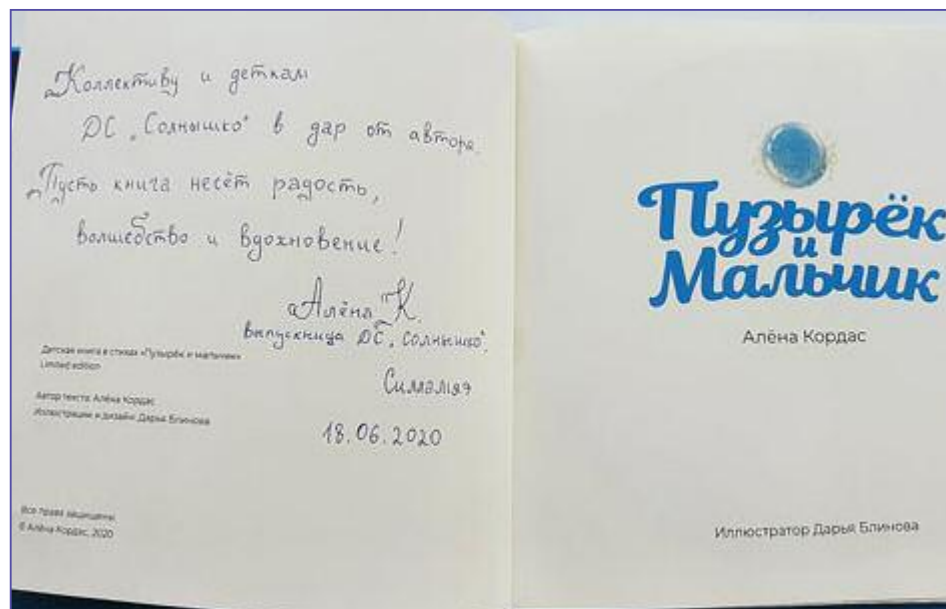 Коллективу и деткам
ДС „Солнышко" в дар от автора.
Пусть книга несёт радость,
волшебство и вдохновение!
Алёна К.
выпускница ДС „Солнышко".
18.06.2020
Детская книга в стихах «Пузырёк и мальчик»
Limited edition
Автор текста: Алёна Кордас
Иллюстрации и дизайн: Дарья Блинова
Все права защищены
© Алёна Кордас, 2020
Пузырёк
и
Мальчик
Алёна Кордас
Иллюстратор Дарья Блинова